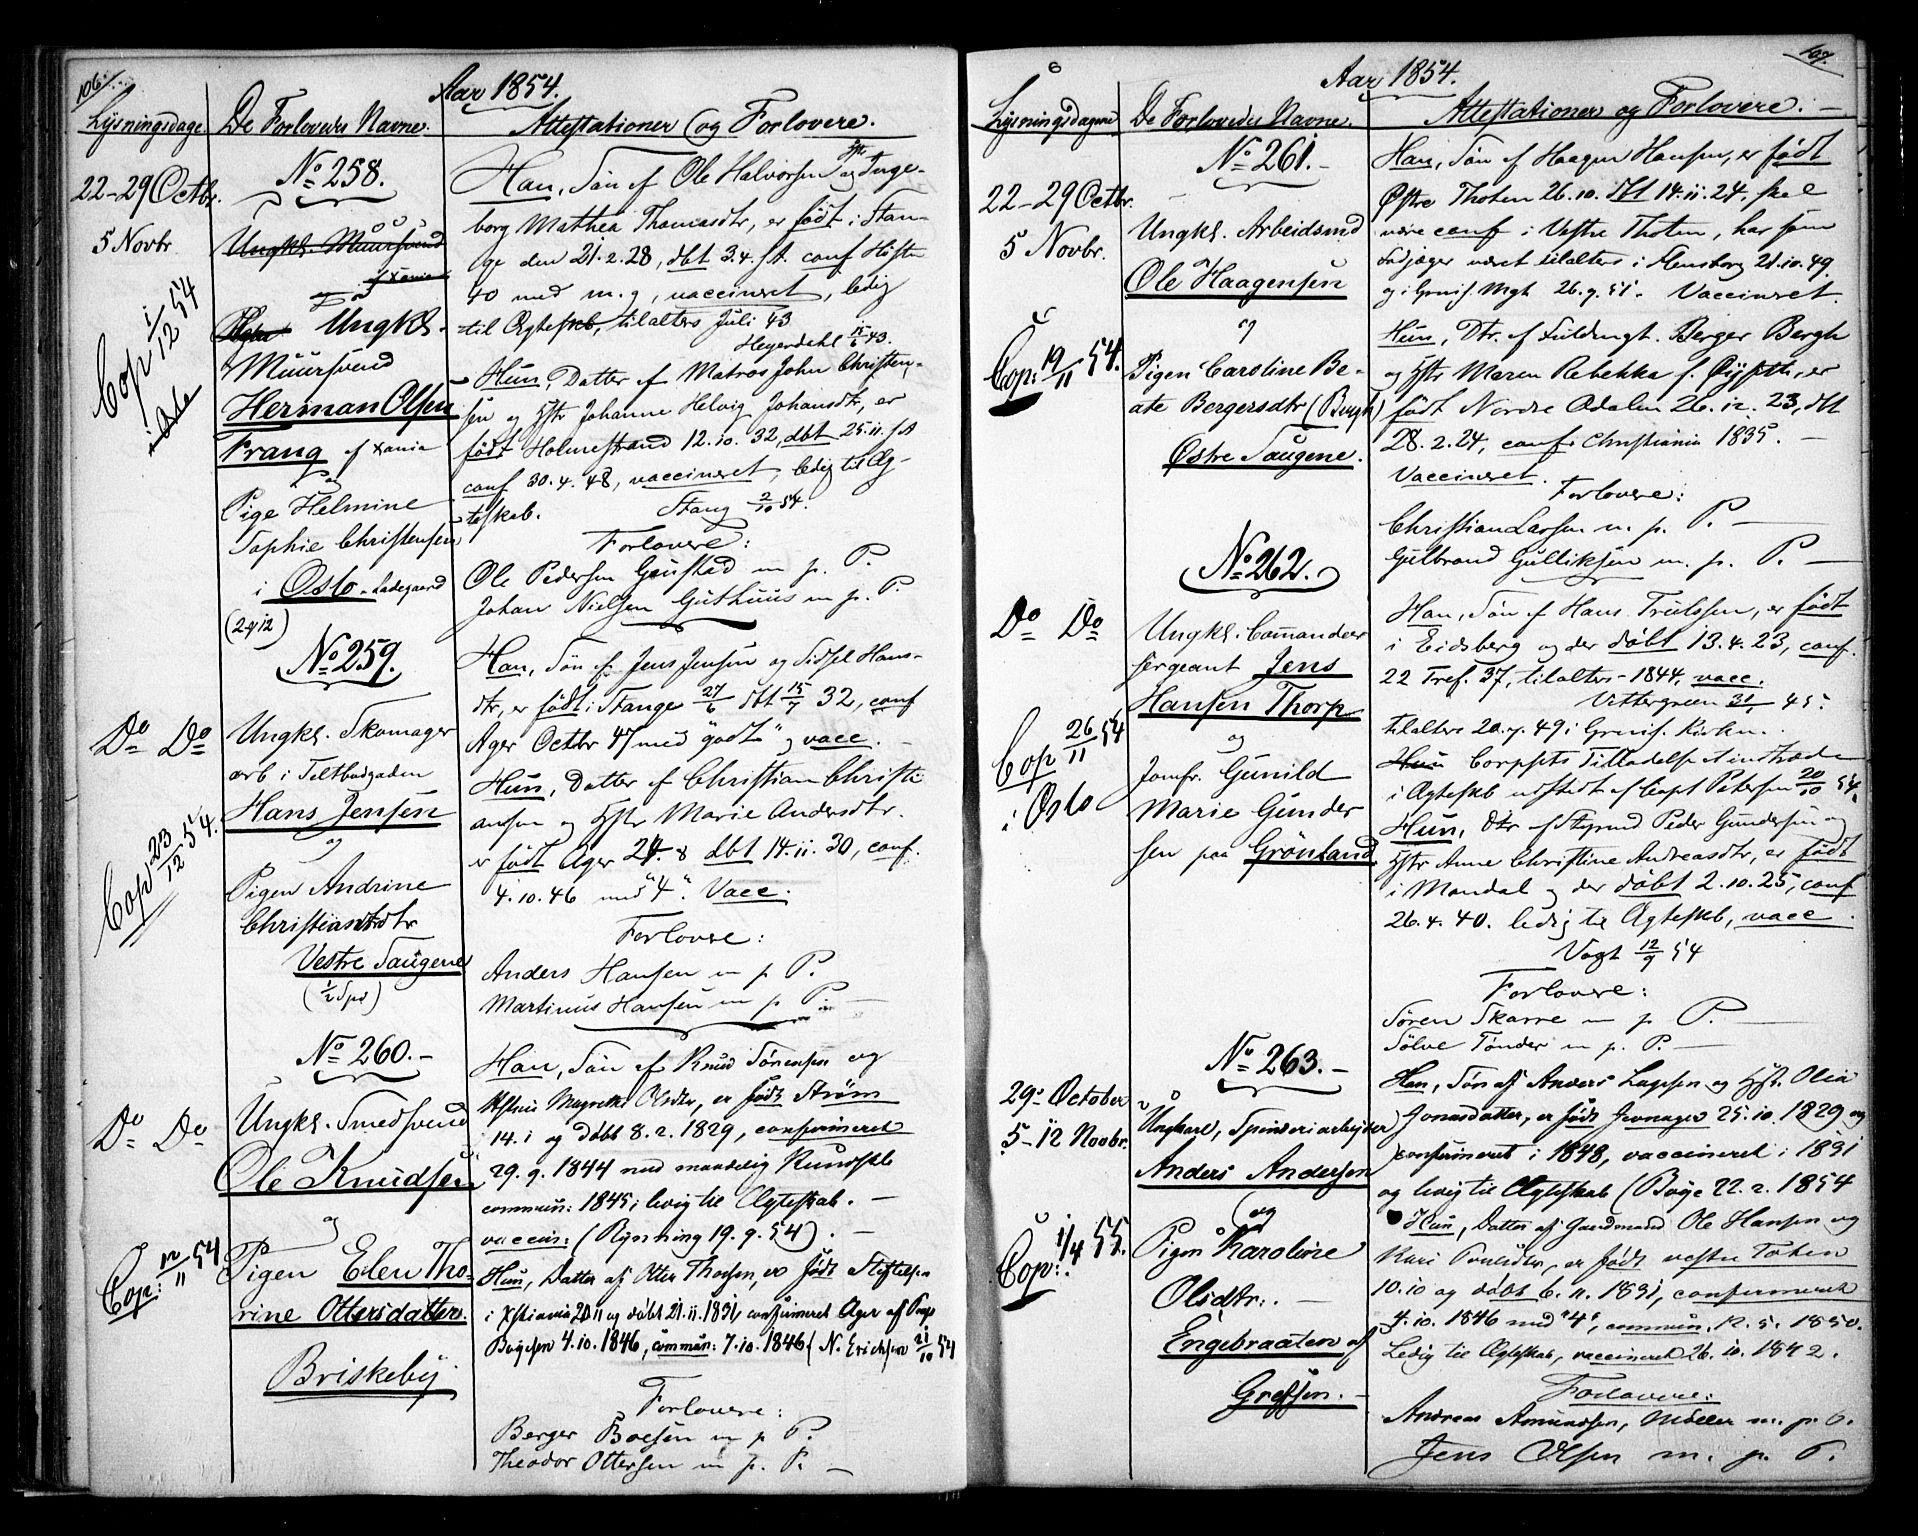 106
Aar 1854.
Lysningsdage. De Forlovedes Navne. Attestationer og Forlovere.
22-29 Octbr.
5 Novbr
Cop 1/12 54
i Oslo
No 258.
Ungkl. Muursvend
af Xania
Ungkl.
Muursvend
Herman Olsen
Frang af Xania
og
Pige Helmine
Sophie Christensen
i Oslo Ladegaard
(2912)
Han, Søn af Ole Halvorsen og Inge-
borg Mathea Thomasdtr, er født i Stan-
ge den 21.2.28, dbt 3.4. s.A. conf
40 med m.g, vaccineret, ledig
til Ægteskb, tilalters Juli 43
Heyerdahl 43.
Hun, Datter af Matros John Christen-
sen og Hstr Johanne Helvig Johansdtr, er
født Holmestrand 12.10.32, dbt 25.11. s.A
conf 30.4.48, vaccineret, ledig til Æg-
teskab. Stang 2/10 54.
Forlovere:
Ole Pedersen Gaustad m. p. P.
Johan Nielsen Guthuus m. p. P.
No 259.
Do Do
Cop 23/12 54.
Ungkl. Skomager
arb i Teltbudgaden
Hans Jensen
og
Pigen Andrine
Christiansdtr
Vestre Saugene
(1/2 Spd)
Han, Søn af Jens Jensen og Sidsel Hans-
dtr, er født i Stange 27/6 dbt 15/7 32, conf
Ager Octbr 47 med "godt" og vacc. -
Hun, Datter af Christian Christi
ansen og Hstr Marie Andersdtr.
er født Ager 24.8 dbt 14.11.30, conf.
4.10.46 med "4". Vacc.
Forlovere:
Anders Hansen m p P.
Martinus Hansen m p P. -
No 260. -
Do Do
Cop: 12/11 54
Ungkl. Smedsvend
Ole Knudsen
og
Pigen Elen Tho-
rine Ottersdatter.
Briskeby.
Han, Søn af Knud Sørensen og
Hstru Magrethe Olsdtr, er født Strøm
14.1 og døbt 8.2.1829, confirmeret
29.9.1844 med mandelig Kundskb
commun: 1845; ledig til Ægteskab. -
vaccin: (Rynning 19.9.54). -
Hun, Datter af Otter Thorsen, er født Stiftelsen
i Xstiania 20 11 og døbt 21.11.1831, confirmeret Ager af
Boyesen 4.10.1846, commun: 7.10.1846 (N. Erichsen 21/10 54
Forlovere:
Berger Boesen m p P.
Theodor Ottersen m. p. P. -
107.
Aar 1854.
Lysningsdagene De Forlovedes Navne. Attestationer og Forlovere. -
22-29 Octbr.
5 Novbr.
Cop: 19/11 54.
No 261. -
Ungkl. Arbeidsmd
Ole Haagensen
og
Pigen Caroline Be-
ate Bergersdtr (Bergh)
Østre Saugene.
Han, Søn af Haagen Hansen, er født
Østre Thoten 26.10. dbt 14.11.24. skal
være conf i Vestre Thoten, har som
været tilalters i Flensborg 21.10.49
og i Grnis. Mgh 26.9.51. Vaccineret.
Hun, Dtr. af Fuldmgt. Berger Bergh
og Hstr Maren Rebekka f. , er
født Nordre Odalen 26.12.23, dbt
28.2.24, conf. Christiania 1835. -
Vaccineret.
Forlovere:
Christian Larsen m. p. P. -
Gulbrand Gulliksen m. p. P. -
No 262.
Do Do
Cop 26/11 54
i Oslo
Ungkl. Comandeer
sergeant Jens
Hansen Thorp
og
Jomfr. Gunild
Marie Gunder
sen paa Grønland
Han, Søn af Hans Trulssen, er født
i Eidsberg og der døbt 13.4.23, conf.
22 Tref. 37, tilalters 1844, vacc.
Vittergreen 31/ 45.
tilalters 20.7.49 i Grnis. Kirken.
Hun Corpsets Tilladelse at indtræde
i Ægteskb udstedt af Capt Petersen 20/10 54.
Hun, Dtr af Peder Gundersen og
Hstr Anne Christine Andreasdtr, er født
i Mandal og der døbt 2.10.25, conf
26.4.40. ledig til Ægteskb, vacc.
Vogt 12/9 54
Forlovere:
Søren Skarre m p P. -
Sølve Tønder m. p. P. -
No 263. -
29. October
5-12 Novbr.
Cop: 1/4 55.
Ungkarl, Spinderiarbejder
Anders Andersen
og
Pigen Karoline
Olsdtr: -
Engebraaten af
Grefsen. -
Han, Søn af Anders Larsen og Hst. Olia
Jonasdatter, er født Jevnager 25.10.1829 og
confirmeret i 1848, vaccineret i 1831
og ledig til Ægteskab (Boye 22.2.1854
Hun, Datter af Gaardmand Ole Hansen og
Kari Poulsdtr, er født vestre Toten
10.10 og døbt 6.11.1831, confirmeret
4.10.1846 med "4", commun. 12.5.1850.
Ledig til Ægteskab, vaccineret 26.10.1842.
Forlovere:
Andreas Amundsen, Møller m. p. P.
Jens Olsen m. p. P.